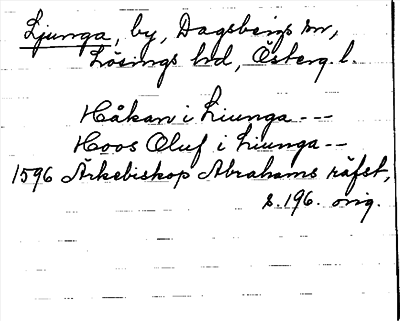 Ljunga, by, Dagsbergs sn,
Lösings hd, Österg. l.
Håkan i Liunga - - -
Hoos Oluf i Liunga - -
1596 Ärkebiskop Abrahams räfst,
s. 196. orig.